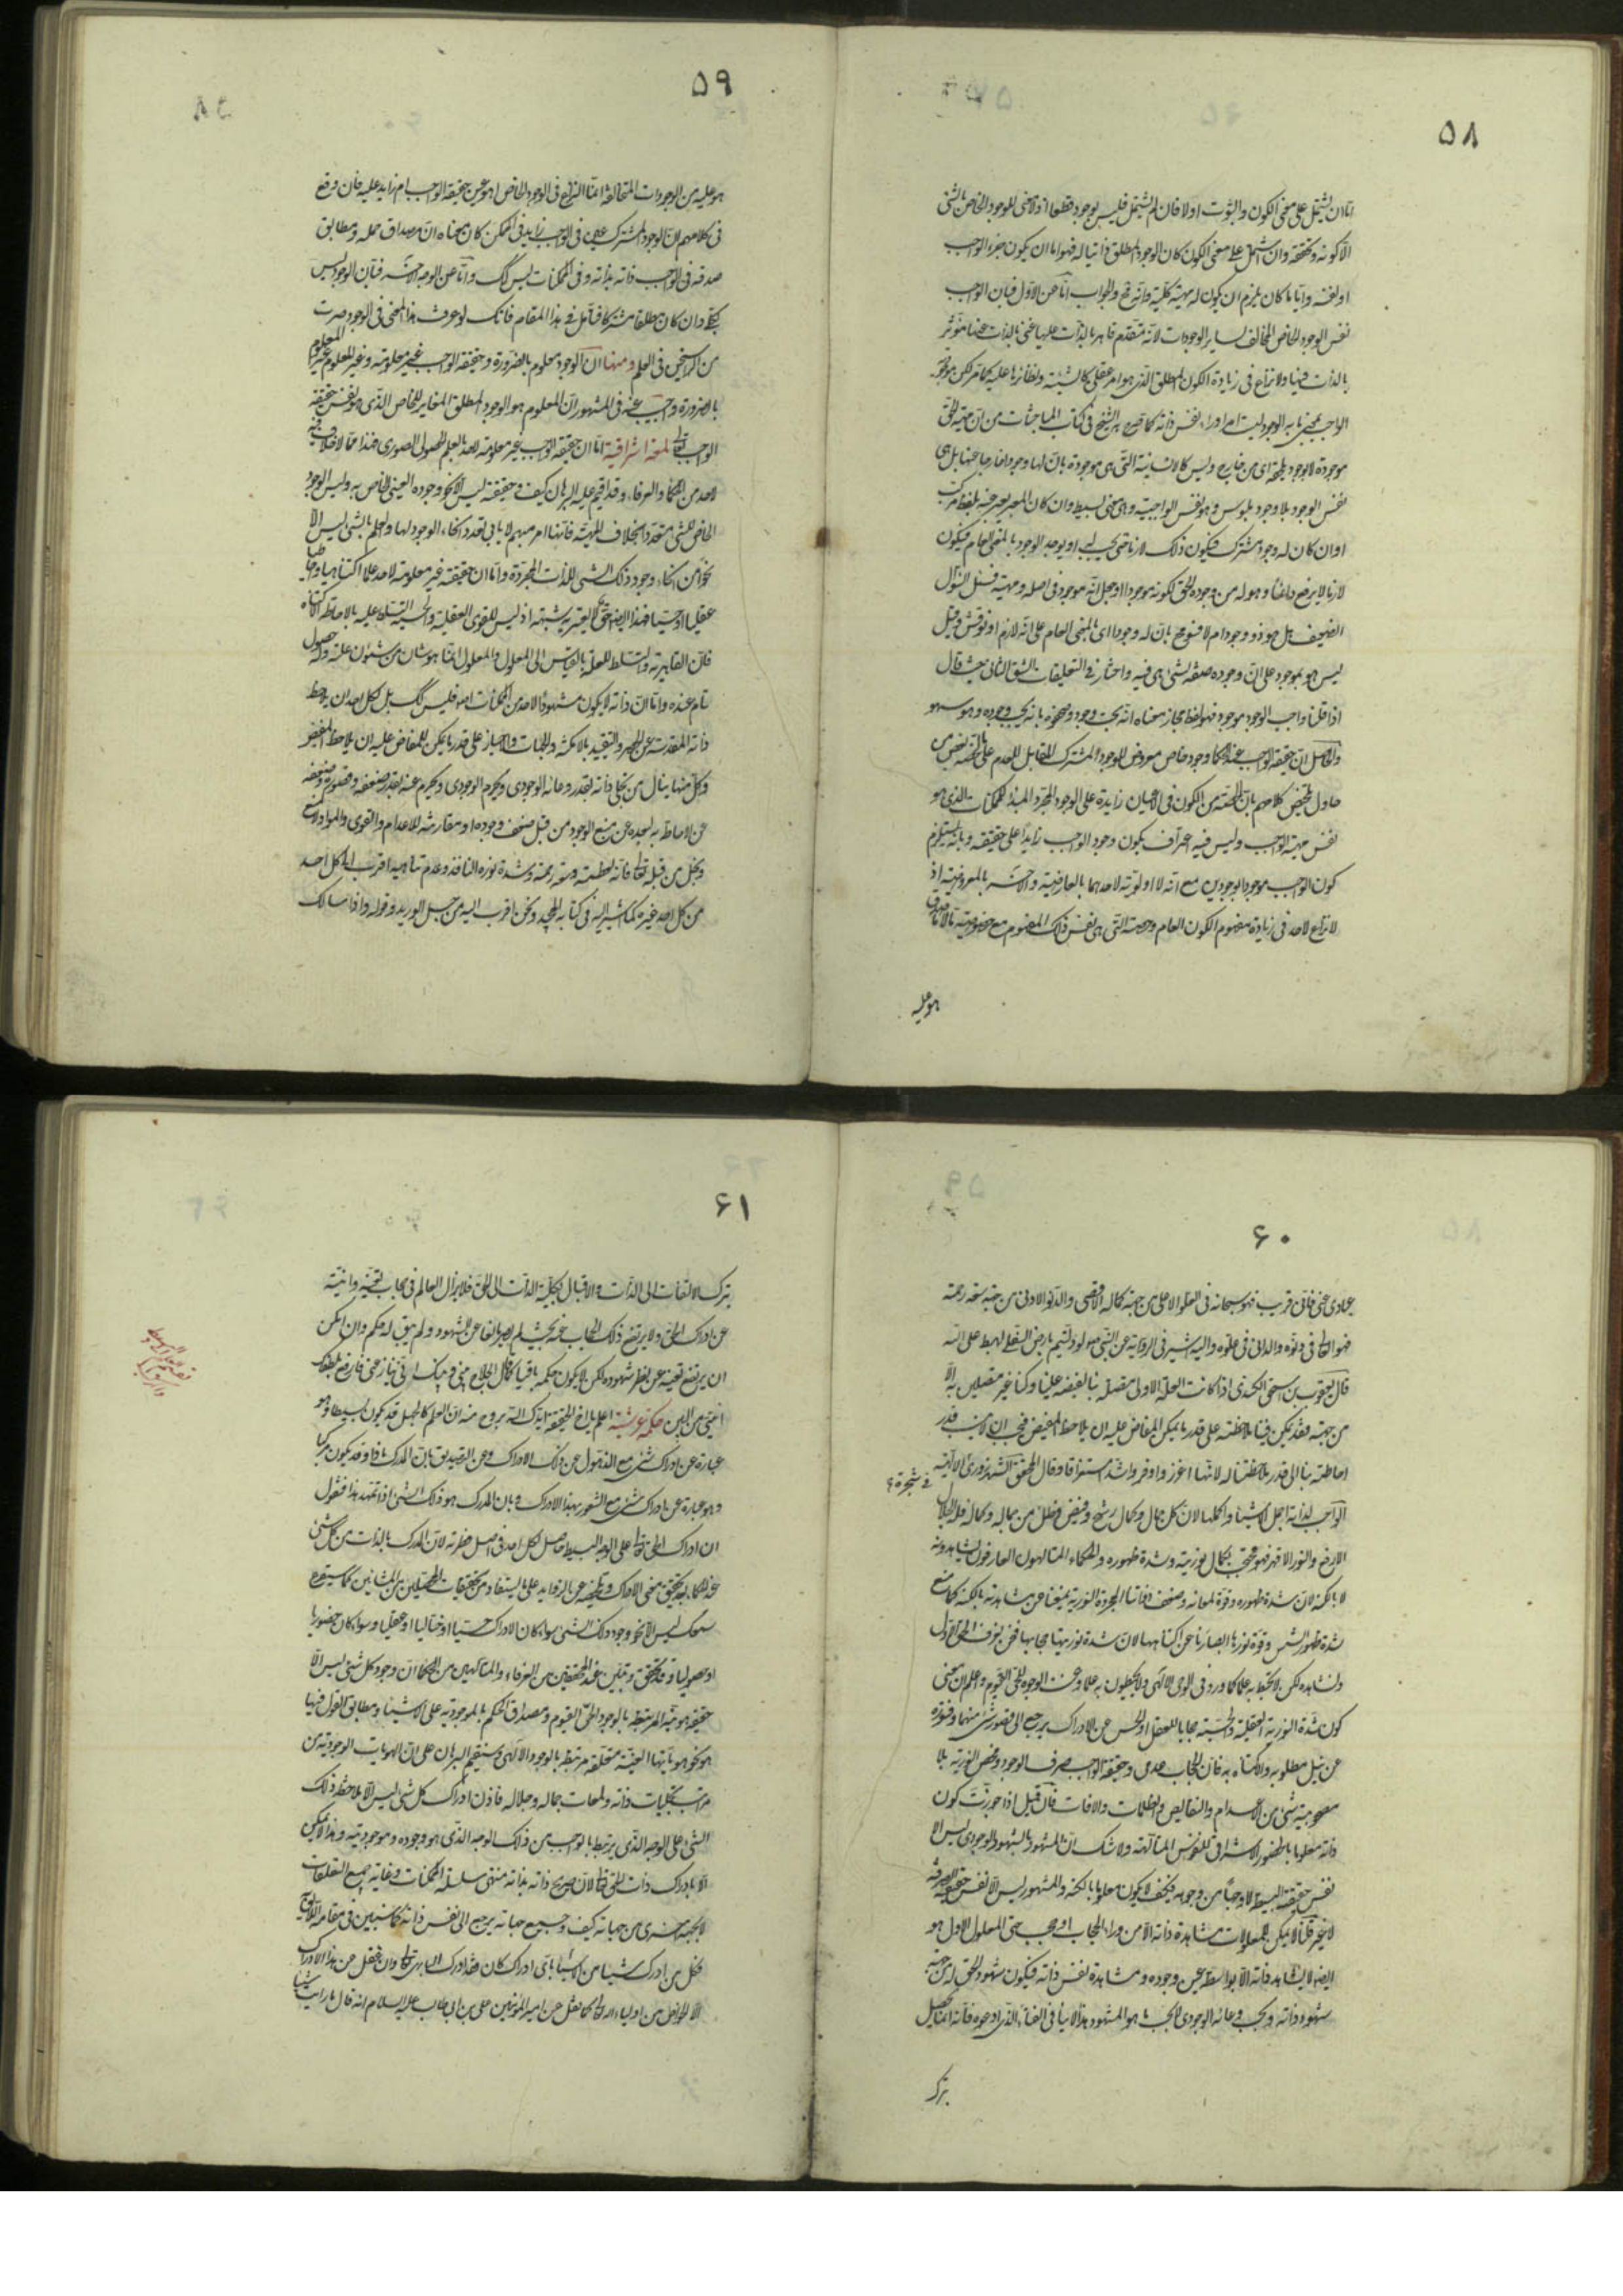 ۵۸
اما ان يشتمل على معنى الكون والثبوت اولا فان لم يشتمل فليس بوجود قطعا اذ لا معنى للوجود الخاص بالشئ
الا كونه وتحققه وان اشتمل على معنى الكون كان الوجود المطلق ذاتيا له فهو اما ان يكون جزء الواجب
او نفسه وايا ما كان يلزم ان يكون له مهية كلية وانه مح والجواب اما عن الاول فبان الواجب
نفس الوجود الخاص المخالف لساير الوجودات لانه متقدم قاهر بالذات عليها غنى بالذات عنها مؤثر
بالذات فيها ولا نزاع فى زيادة الكون المطلق الذى هو امر عقلى كالشيئية ونظائرها عليه كما مر لكن موجودية
الواجب بمعنى ما به الوجود ليست امرا وراء نفس ذاته كما صرح به الشيخ فى كتاب المباحثات من ان مهية الحق
موجودة لا بوجود يلحقها اى من خارج وليس كالانسانية التى هى موجودة بان لها وجودا خارجا عنها بل هى
نفس الوجود بلا وجود ملبوس وهو نفس الواجبية وهى معنى بسيط وان كان المعبر يعبر عنه بلفظ مركب
او ان كان له وجود مشترك فيكون ذلك لازما حتى يجب له او يوجد الوجود بالمعنى العام فيكون
لازما لا يرفع دائما وهو له من وجوده الحق لكونه موجودا او جعل انه موجود فى اصله ومهيته فسئل السؤال
الضعيف هل هو ذو وجود ام لا فسومح بان له وجودا اى بالمعنى العام على انه لازم او نوقش وقيل
ليس هو بموجود على ان وجوده صفة لشئ هى فيه واختار فى التعليقات الشق الثانى حيث قال
اذا قلنا واجب الوجود موجود فهو لفظ مجاز معناه انه يجب وجوده لا انه يجب وجوده وهو سهو
والحاصل ان حقيقة الواجب عند الحكماء وجود خاص معروض للوجود المشترك المقابل للعدم على ما لخصه بعض من
حاول تلخيص كلامهم بان الحصة من الكون فى الاعيان زايدة على الوجود المجرد المبدء للممكنات الذى هو
نفس مهية الواجب وليس فيه اعتراف بكون وجود الواجب زايدا على حقيقته وبانه يستلزم
كون الواجب موجودا بوجودين مع انه لا اولوية لاحدهما بالعارضية والاخر بالمعروضية اذ
لا نزاع لاحد فى زيادة مفهوم الكون العام وحصته التى هى نفس ذلك المفهوم مع خصوصية ما لا ما صدق
هو عليه
۵۹
هو عليه من الوجودات المتخالفة انما النزاع فى الوجود الخاص اهو عين حقيقة الواجب ام زايد عليه فان وقع
فى كلامهم ان الوجود المشترك عين فى الواجب زايد فى الممكن كان معناه ان مصداق حمله ومطابق
صدقه فى الواجب ذاته بذاته وفى الممكنات ليس كك واما عن الوجه الاخر فبان الوجود ليس
بكلى وان كان مطلقا مشتركا فتامل فى هذا المقام فانك لو عرفت هذا المعنى فى الوجود صرت
من الراسخين فى العلم ومنها ان الوجود معلوم بالضرورة وحقيقة الواجب غير معلومة وغير المعلوم غير المعلوم
بالضرورة واجيب عنه فى المشهور ان المعلوم هو الوجود المطلق المغاير للخاص الذى هو نفس حقيقة
الواجب تعالى لمعة اشراقية اما ان حقيقة الواجب غير معلومة لاحد بالعلم الحصولى الصورى فهذا مما لا خلاف فيه
لاحد من الحكماء والعرفاء وقد اقيم عليه البرهان كيف وحقيقته ليس الا نحو وجوده العينى الخاص به وليس الوجود
الخاص للشئ متعددا بخلاف المهية فانها امر مبهم لا يابى تعدد انحاء الوجود لها والعلم بالشئ ليس الا
نحوا من انحاء وجود ذلك الشئ للذات المجردة واما ان حقيقته غير معلومة لاحد علما اكتناهيا واحاطيا
عقليا او حسيا فهذا ايضا حق لا يعتريه شبهة اذ ليس للقوى العقلية والحسية التسلط عليه بالاحاطة والاكتناه
فان القاهرية والتسلط للعلة بالقياس الى المعلول والمعلول انما هو شان من شئون علته وله حصول
تام عنده واما ان ذاته لا يكون مشهودا لاحد من الممكنات اصلا فليس كك بل لكل احد ان يلاحظ
ذاته المقدسة عن الحصر والتقييد بالامكنة والجهات والاحياز على قدر ما يمكن للمفاض عليه ان يلاحظ المفيض
وكل منها ينال من تجلى ذاته بقدر وعائه الوجودى ويحرم عنه بقدر ضعفه وقصوره وضيقه
عن الاحاطة به لبعده عن منبع الوجود من قبل ضعف وجوده او مقارنته للاعدام والقوى والمواد لا لمنع
وبخل من قبله تعالى فانه لعظمته وسعة رحمته وشدة نوره النافذ وعدم تناهيه اقرب الى كل احد
من كل احد غيره كما اشير اليه فى كتابه المجيد ونحن اقرب اليه من حبل الوريد وقوله واذا سالك
۶۰
عبادى عنى فانى قريب فهو سبحانه فى العلو الاعلى من جهة كماله الاقصى والدنو الادنى من جهة سعة رحمته
فهو العالى فى دنوه والدانى فى علوه واليه اشير فى الرواية عن النبى ص لو دليتم بارض السفلى لهبط على الله
قال يعقوب بن اسحق الكندى اذا كانت العلة الاولى متصلة بنا لفيضه علينا وكنا غير متصلين به الا
من جهة فقد يمكن فينا ملاحظته على قدر ما يمكن المفاض عليه ان يلاحظ المفيض فيجب ان لا ينسب قدر
احاطته بنا الى قدر ملاحظتنا له لانها اغزر واوفر واشد استغراقا وقال المحقق الشهرزورى فى شجرة الالهية
الواجب لذاته اجمل الاشياء واكملها لان كل جمال وكمال رشح وفيض وظل من جماله وكماله فله الجلال
الارفع والنور الاقهر فهو محتجب بكمال نوريته وشدة ظهوره والحكماء المتالهون العارفون به يشاهدونه
لا بالكنه لان شدة ظهوره وقوة لمعانه وضعف ذواتنا المجردة النورية يمنعنا عن مشاهدته بالكنه كما منع
شدة ظهور الشمس وقوة نورها ابصارنا عن اكتناهها لان شدة نوريتها حجابها فنحن نعرف الحق الاول
ونشاهده لكن لا نحيط به علما كما ورد فى الوحى الالهى ولا يحيطون به علما وعنت الوجوه للحى القيوم واعلم ان معنى
كون شدة النورية العقلية والحسية حجابا للعقل او الحس عن الادراك يرجع الى قصور شئ منهما وفتوره
عن نيل مطلوبه والاكتناه به فان الحجاب عدمى وحقيقة الواجب صرف الوجود ومحض النورية بلا
مصحوبية شئ من الاعدام والنقايص والظلمات والافات فان قيل اذا جوزت كون
ذاته معلوما بالحضور الاشراقى للنفوس المتالهة ولا شك ان المشهود بالشهود الوجودى ليس الا
نفس حقيقته البسيطة لا وجها من وجوهه فكيف لا يكون معلوما بالكنه والمشهود ليس الا نفس حقيقته الصرفة
لا غير قلنا لا يمكن للمعلولات مشاهدة ذاته الا من وراء حجاب او حجب حتى المعلول الاول هو
ايضا لا يشاهد ذاته الا بواسطة عين وجوده ومشاهدة نفس ذاته فيكون شهود الحق له من جهة
شهود ذاته وبحسب وعائه الوجودى لا بحسب ما هو المشهود وهذا لا ينافى الفناء الذى ادعوه فانه انما يحصل
بترك
۶۱
بترك الالتفات الى الذات والاقبال بكلية الذات الى الحق فلا يزال العالم فى حجاب تعينه وانيته
عن ادراك الحق ولا يرتفع ذلك الحجاب عنه بحيث لم يصر مانعا عن الشهود ولم يبق له حكم وان امكن
ان يرتفع تعينه عن نظر شهوده لكن لا يكون حكمه باقيا كما قال الحلاج بينى وبينك انى ينازعنى فارفع بلطفك
انيى من البين حكمة عرشية اعلم يا اخا الحقيقة ايدك الله بروح منه ان العلم كالجهل قد يكون بسيطا وهو
عبارة عن ادراك شئ مع الذهول عن ذلك الادراك وعن التصديق بان المدرك ماذا وقد يكون مركبا
وهو عبارة عن ادراك شئ مع الشعور بهذا الادراك وبان المدرك هو ذلك الشئ اذا تمهد هذا فنقول
ان ادراك الحق تعالى على الوجه البسيط حاصل لكل احد فى اصل فطرته لان المدرك بالذات من كل شئ
عند الحكماء بعد تحقيق معنى الادراك وتلخيصه عن الزوايد على ما يستفاد من تحقيقات المحصلين من المشائين كما سيقرع
سمعك ليس الا نحو وجود ذلك الشئ سواء كان الادراك حسيا او خياليا او عقليا وسواء كان حضوريا
او حصوليا وقد تحقق وتبين عند المحققين من العرفاء والمتالهين من الحكماء ان وجود كل شئ ليس الا
حقيقة هويته المرتبطة بالوجود الحق القيوم ومصداق الحكم بالموجودية على الاشياء ومطابق القول فيها
هو نحو هوياتها العينية متعلقة مرتبطة بالوجود الالهى وسنقيم البرهان على ان الهويات الوجودية من
مراتب تجليات ذاته ولمعات جماله وجلاله فاذن ادراك كل شئ ليس الا ملاحظة ذلك
الشئ على الوجه الذى يرتبط بالواجب من ذلك الوجه الذى هو وجوده وموجوديته وهذا لا يمكن
الا بادراك ذات الحق تعالى لان صريح ذاته بذاته منتهى سلسلة الممكنات وغاية جميع التعلقات
لا بجهة اخرى من جهاته كيف وجميع جهاته يرجع الى نفس ذاته كما سنبين فى مقامه اللايق
فكل من ادرك شيئا من الاشياء باى ادراك كان فقد ادرك البارى تعالى وان غفل عن هذا الادراك
الا الخواص من اولياء الله تعالى كما نقل عن امير المؤمنين على بن ابى طالب عليه السلام انه قال ما رايت شيئا